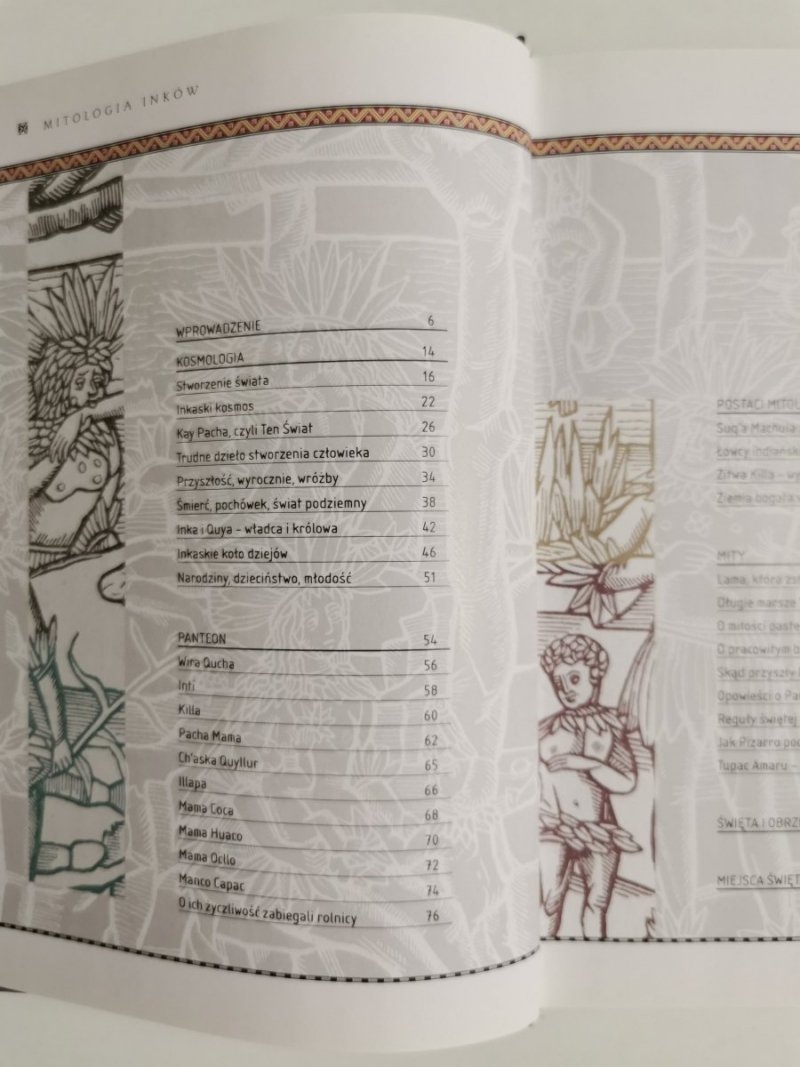 MITOLOGIA INKÓW
WPROWADZENIE 6
KOSMOLOGIA 14
Stworzenie świata 16
Inkaski kosmos 22
Kay Pacha, czyli Ten Świat 26
Trudne dzieło stworzenia człowieka 30
Przyszłość, wyrocznie, wróżby 34
Śmierć, pochówek, świat podziemny 38
Inka i Quya – władca i królowa 42
Inkaskie koło dziejów 46
Narodziny, dzieciństwo, młodość 51
PANTEON 54
Wira Qucha 56
Inti 58
Killa 60
Pacha Mama 62
Ch'aska Quyllur 65
Illapa 66
Mama Coca 68
Mama Huaco 70
Mama Ocllo 72
Manco Capac 74
O ich życzliwość zabiegali rolnicy 76
POSTACI MITOL
Suq'a Machula
Łowcy indiańsk
Zitwa Killa –
Ziemia bogata
MITY
Lama, która
Długie marsze
O miłości
O pracowitym
Skąd przyszły
Opowieści o
Reguły świętej
Jak Pizarro
Tupac Amaru –
ŚWIĘTA I OBRZ
MIEJSCA ŚWIĘT